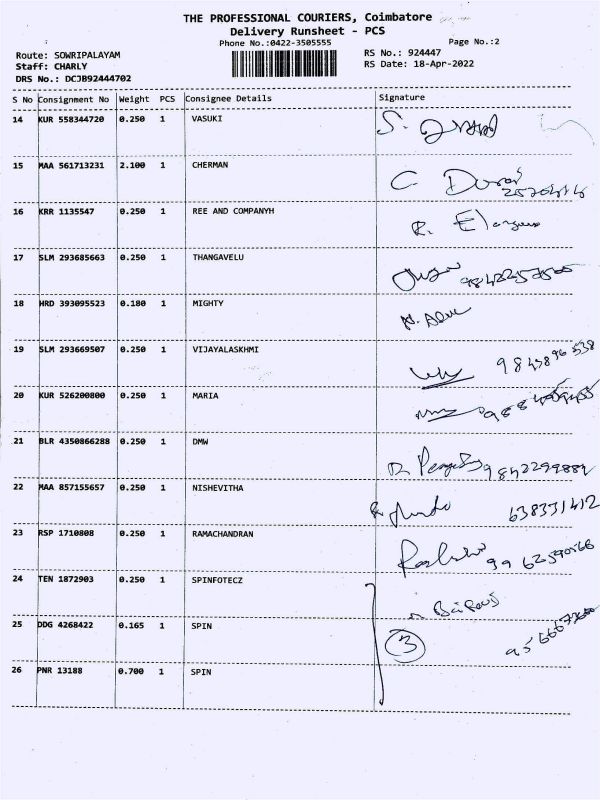 THE PROFESSIONAL COURIERS, Coimbatore
Delivery Runsheet - PCS
Phone No.:0422-3505555
Page No.:2
Route: SOWRIPALAYAM
RS No.: 924447
Staff: CHARLY
RS Date: 18-Apr-2022
DRS No.: DCJB92444702
S No Consignment No Weight PCS Consignee Details Signature
14 KUR 558344720 0.250 1 VASUKI
15 MAA 561713231 2.100 1 CHERMAN
16 KRR 1135547 0.250 1 REE AND COMPANYH
17 SLM 293685663 0.250 1 THANGAVELU
18 HRD 393095523 0.180 1 MIGHTY
19 SLM 293669507 0.250 1 VIJAYALASKHMI
20 KUR 526200800 0.250 1 MARIA
21 BLR 4350866288 0.250 1 DMW
22 MAA 857155657 0.250 1 NISHEVITHA
638331412
23 RSP 1710808 0.250 1 RAMACHANDRAN
24 TEN 1872903 0.250 1 SPINFOTECZ
25 DDG 4268422 0.165 1 SPIN
3
26 PNR 13188 0.700 1 SPIN